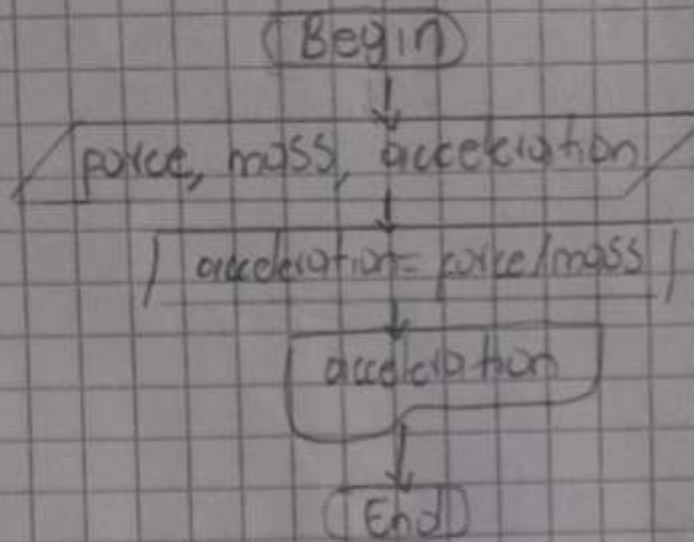 Begin
force, mass, acceleration
acceleration = force/mass
acceleration
End